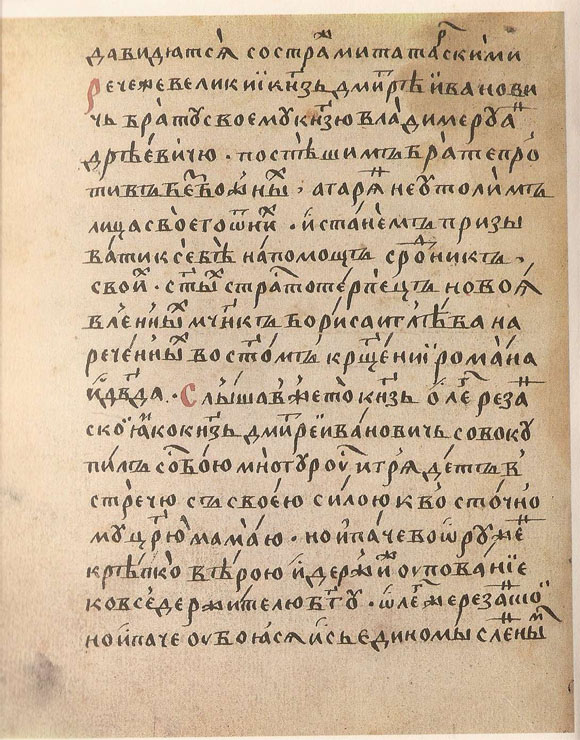 давидѧтсѧ̀ состра́митатар̾скими
Речежевеликиї кн҃зь дмитре́й їванови
чь брату своемукн҃зю владимеруан
дрѣ́евичю · поспѣшимъ брате про́
тивъ безбо́жны́х , атарѧ́ неутолимъ
лицасвоегоѿни́х · и҆ста́немъ призы
ватиксебѣ̀ на́помощъ сро́дникъ ,
свои́х · ст҃ы́х страстотерпецъ новоꙗ́
вленны́х мч҃нкъ бориса иглѣ́ба на
речѐнны́х востомъ крщ҃е́нїи романа
и҆дв҃да · Слы́шавжето̀ кн҃зь о҆ле́г реза́н
ско́й ꙗ҆́ко кн҃зь дми́трей ива́новичь совоку
пи́лъ собо́ю многу рои и҆ грѧдетъ в
стрѣчю съ свое́ю силою к восто́чно
му цр҃ю̀ мама́ю · но и҆па́че во ѡ҆руже́н
крѣ́пко вѣрою и҆ держи́т оупова́нїе
ко вседержи́телю бг҃у · ѿле́гже реза́нско́й
но и҆паче оубоꙗ́сѧ и҆съ единомы́сленны́м